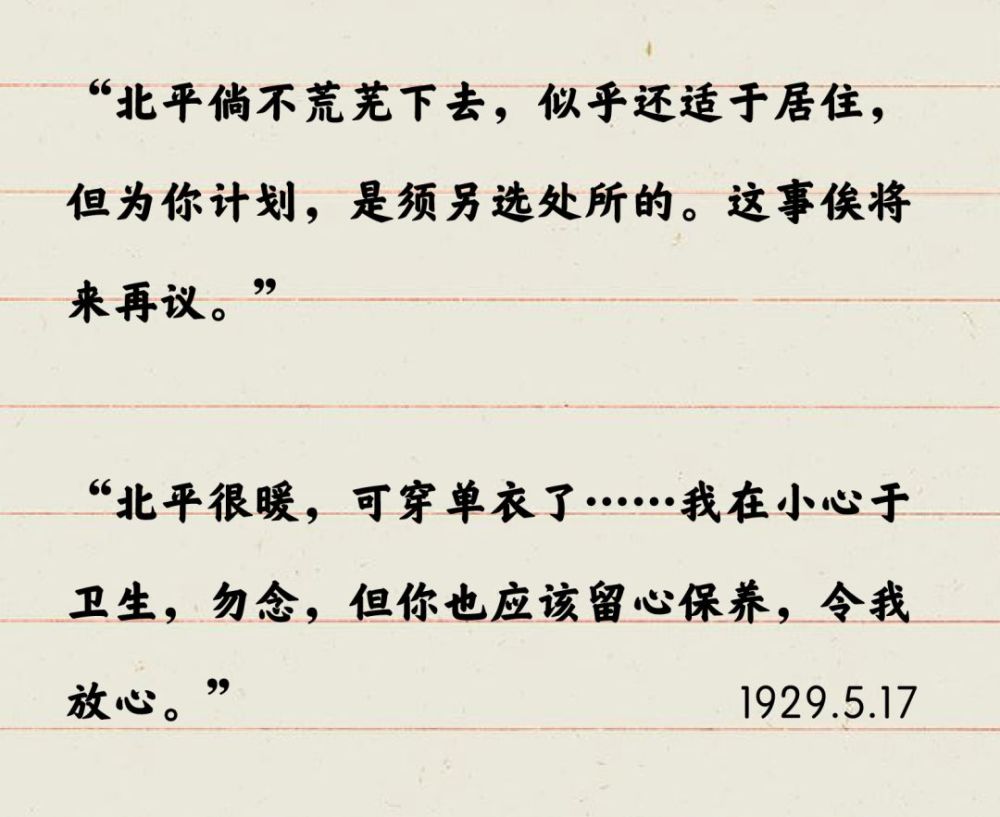 “北平倘不荒芜下去，似乎还适于居住，
但为你计划，是须另选处所的。这事俟将
来再议。”
“北平很暖，可穿单衣了……我在小心于
卫生，勿念，但你也应该留心保养，令我
放心。” 1929.5.17